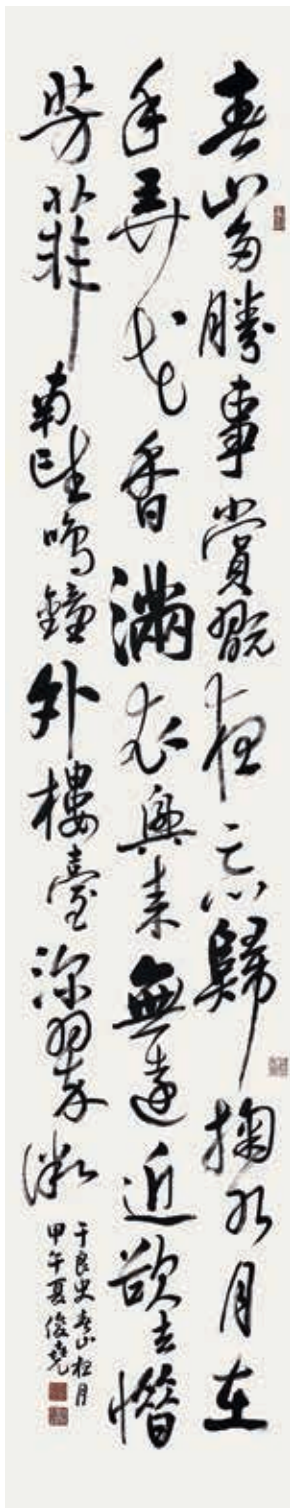 春山多勝事賞翫夜忘歸掬水月在
手弄花香滿衣興來無遠近欲去惜
芳菲南望鳴鐘外樓臺深翠微
于良史春山夜月
甲午夏俊堯